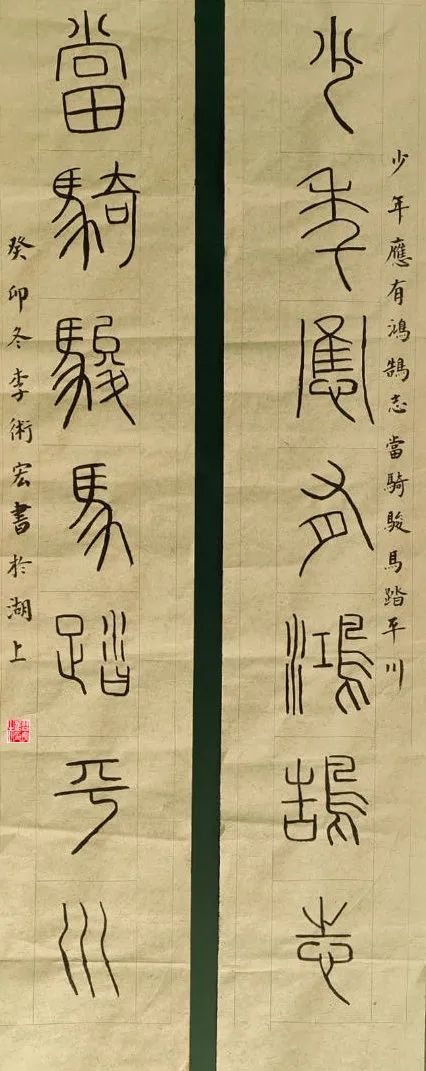 少年應有鴻鵠志
少年應有鴻鵠志當騎駿馬踏平川
當騎駿馬踏平川
癸卯冬李術宏書於湖上